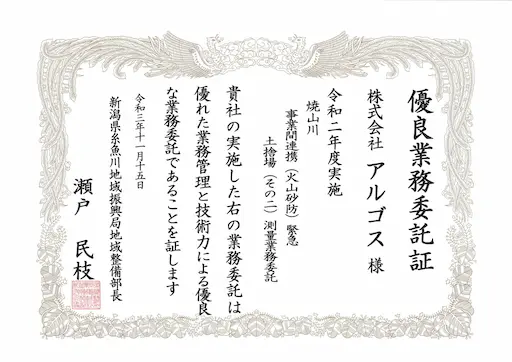 優良業務委託証
株式会社 アルゴス 様
令和二年度実施
焼山川
事業間連携（火山砂防）緊急
土捨場（その二）測量業務委託
貴社の実施した右の業務委託は
優れた業務管理と技術力による優良
な業務委託であることを証します
令和三年十一月十五日
新潟県糸魚川地域振興局地域整備部長
瀬戸 民枝